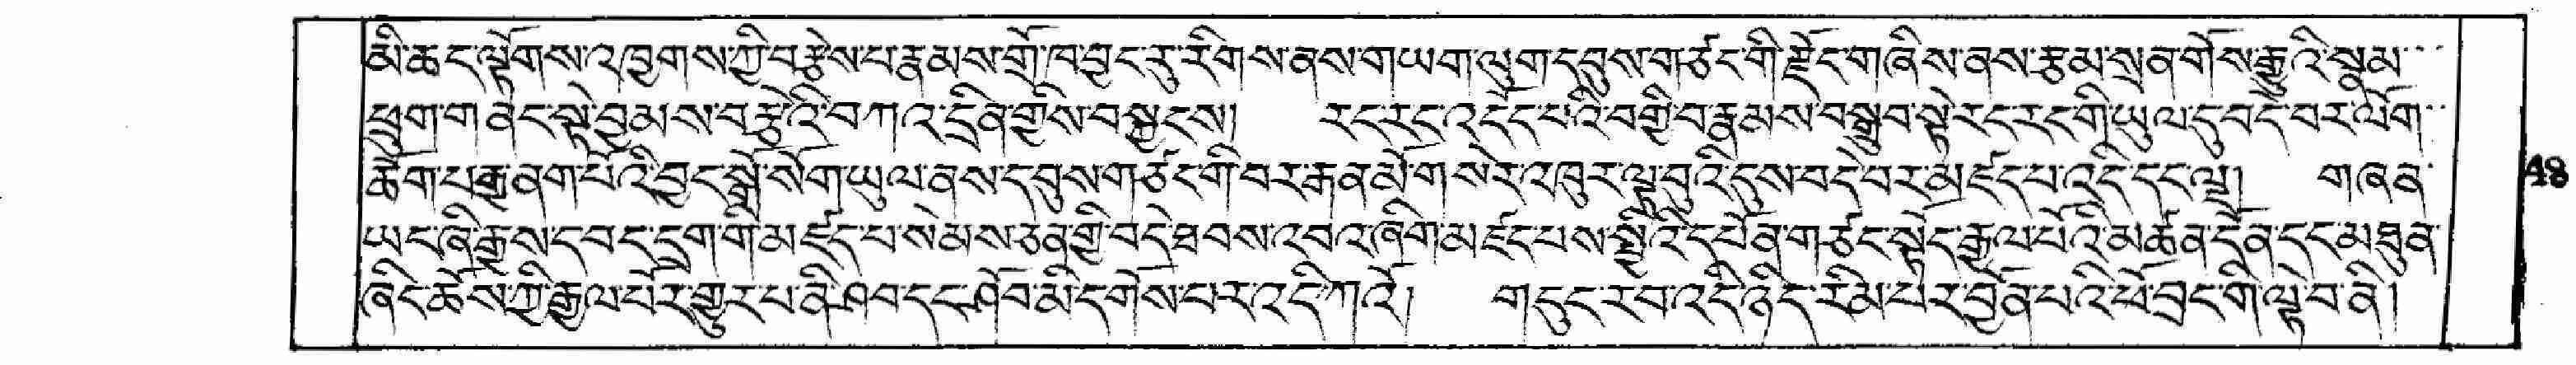 མི་ཆང་ལྟོགས་འཁྱགས་ཀྱི་བརྩེས་པ་རྣམས་གྲོ་ཁ་བྱང་རུ་རིགས་ནས་གཡག་ལུག་དབུས་གཙང་གི་རྫོང་གཞིས་ནས་རྩམ་སྲན་གོས་རྒྱུའི་སྣམ་
ཕྲུག་གནང་སྟེ་བྱམས་བརྩེའི་བཀའ་དྲིན་གྱིས་བསྐྱངས། རང་རང་འདོད་པའི་བགྱི་བ་རྣམས་བསྒྲུབ་སྟེ་རང་རང་གི་ཡུལ་དུ་བདེ་བར་ལོག་
ཆོག་པ་རྒྱ་ནག་པོའི་བྱང་སྒོ་སོག་ཡུལ་ནས་དབུས་གཙང་གི་བར་རྒན་མོ་གསེར་འཁུར་ལྟ་བུའི་དུས་བདེ་བར་མཛད་པ་འདི་དང་ལྔ། གཞན་
ཡང་ཞི་རྒྱས་དབང་དྲག་གི་མཛད་པ་སེམས་ཅན་གྱི་བདེ་ཐབས་འབའ་ཞིག་མཛད་པས་སྤྱིའི་དཔོན་གཙང་སྟོད་རྒྱལ་པོའི་མཚན་དོན་དང་མཐུན་
ཞིང་ཆོས་ཀྱི་རྒྱལ་པོར་གྱུར་པ་ནི་ཤབ་དང་ཤོབ་མི་དགོས་པར་འདི་ཀའོ། གདུང་རབ་འདི་ཉིད་རིམ་པར་བྱོན་པའི་ཕོ་བྲང་གི་ལྟེ་བ་ནི།
48